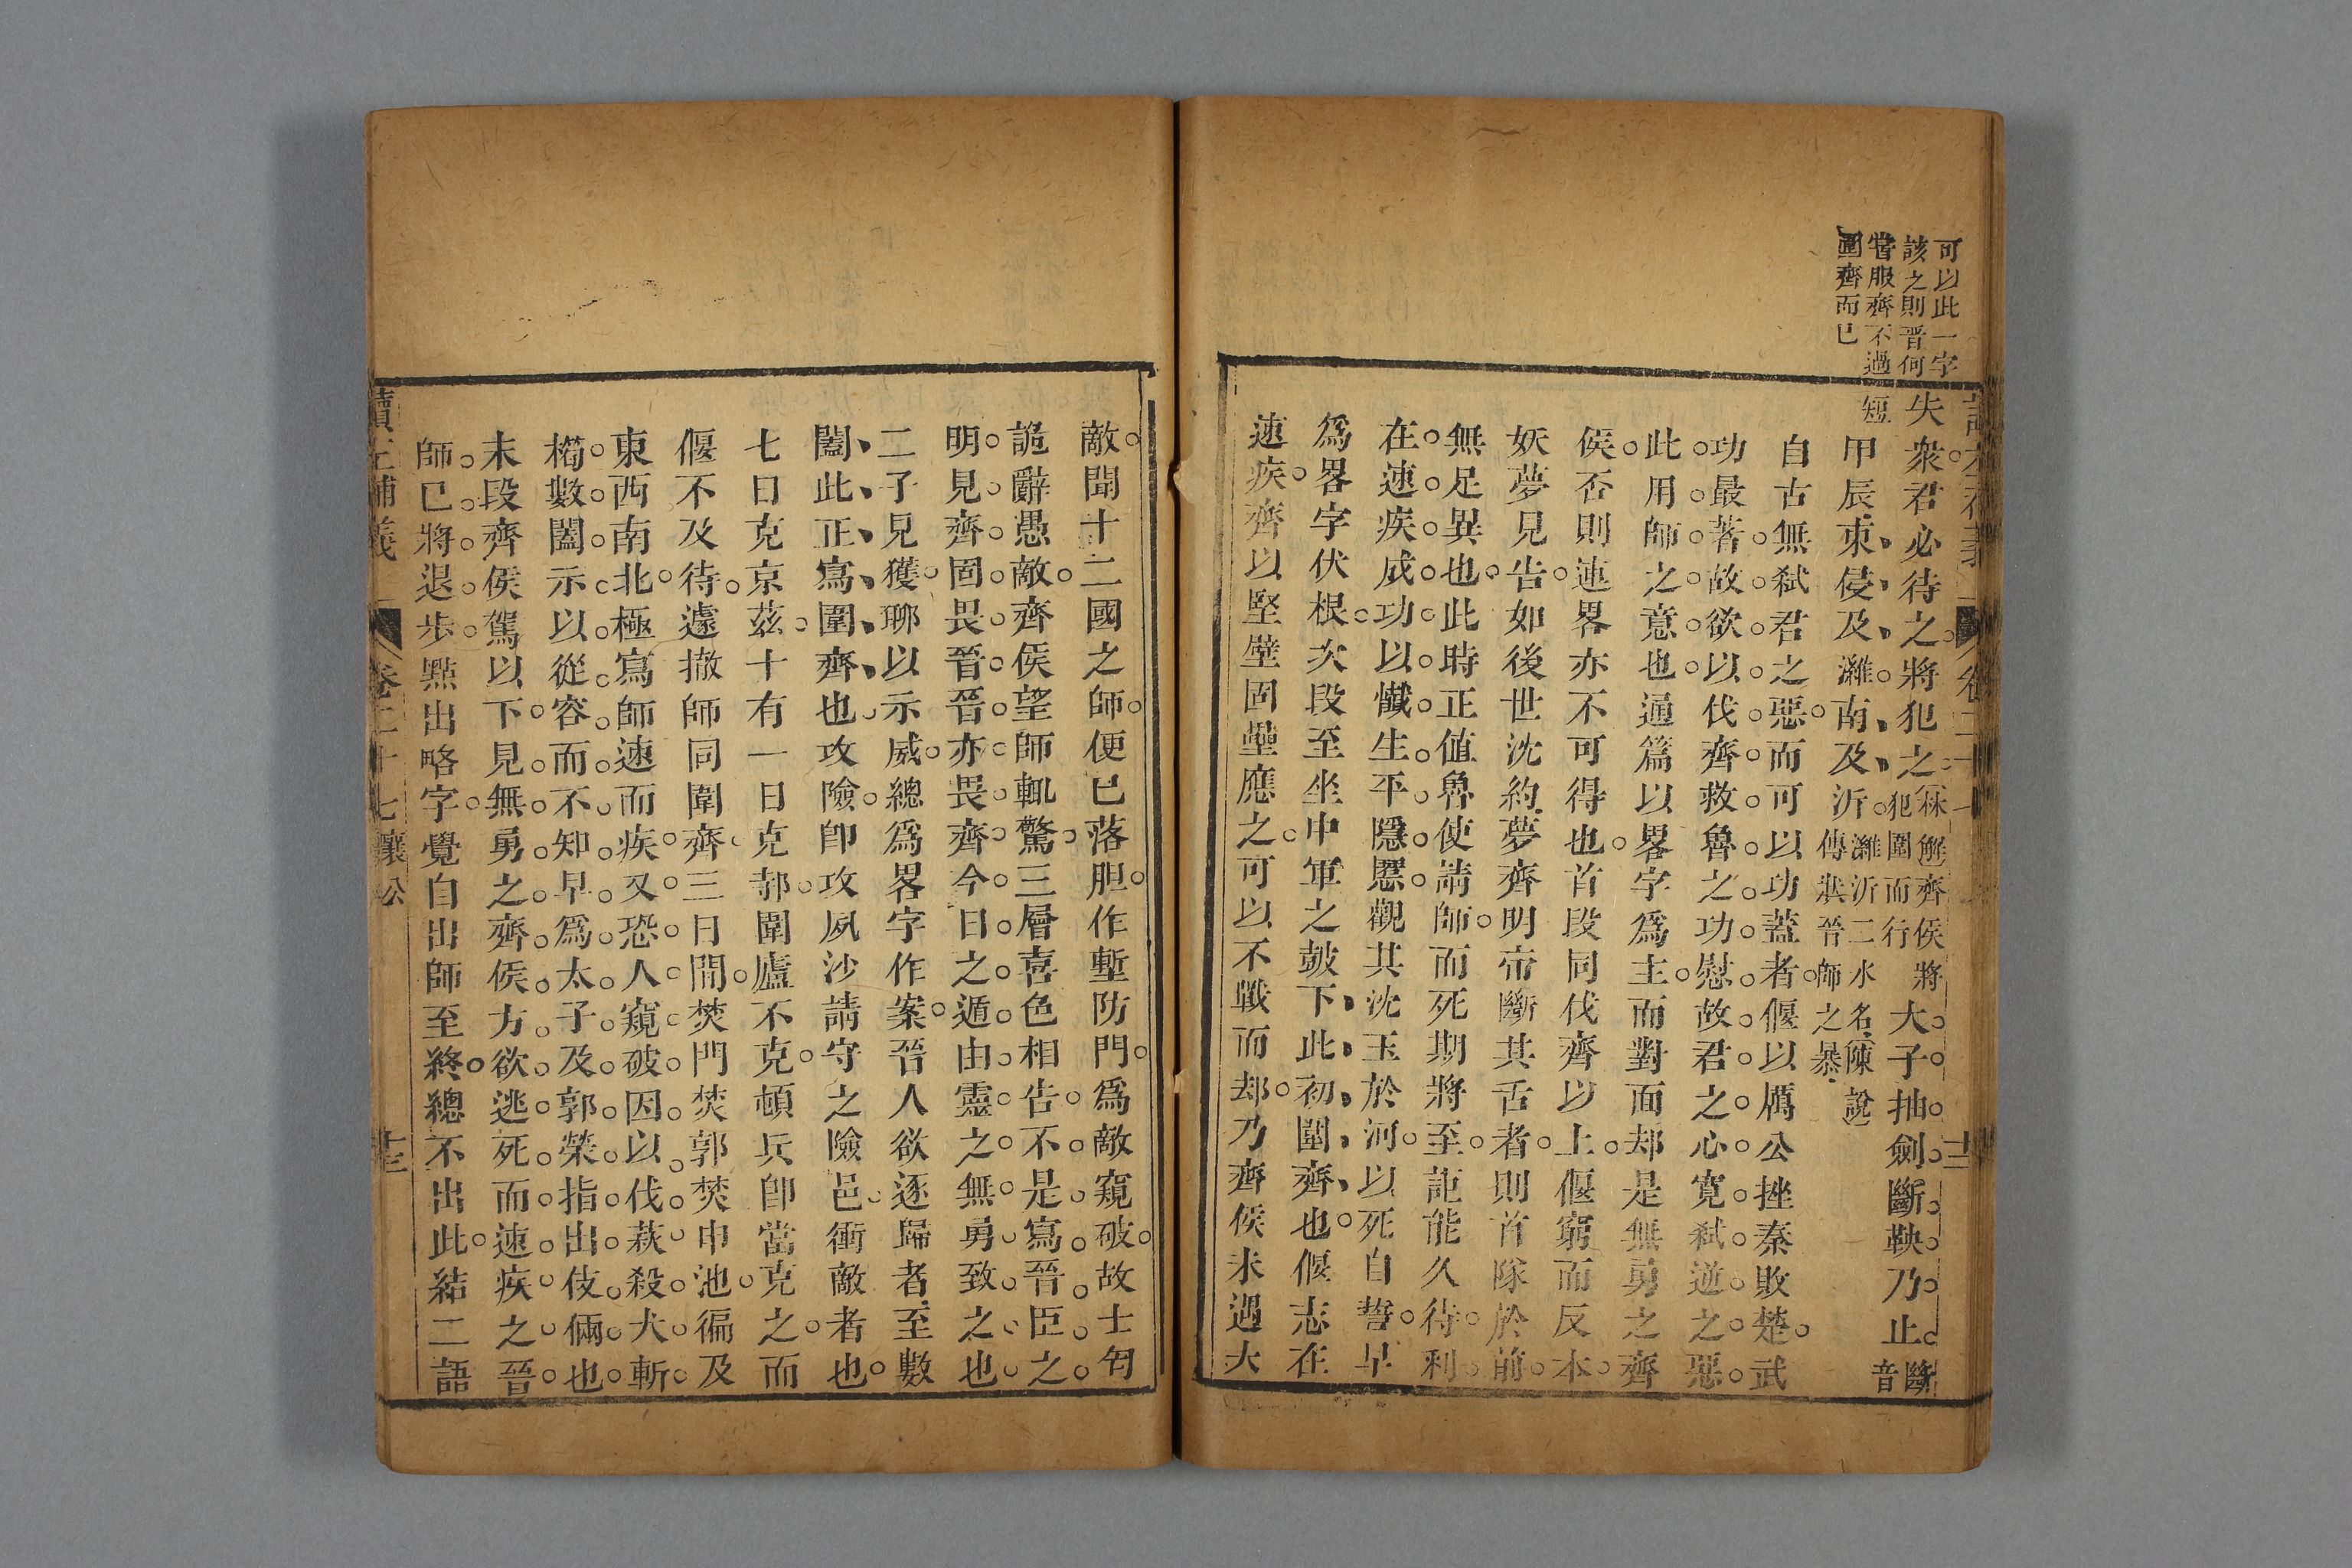 可以此一字
該之則晋何
甞服齊不過
圍齊而已
失衆君必待之將犯之林解齊侯將犯圍而行大子抽劍斷鞅乃止斷音
短甲辰東侵及濰南及沂濰沂二水名陳說傳狀晉師之暴
自古無弑君之惡而可以功蓋者偃以厲公挫秦敗楚武
功最著故欲以伐齊救魯之功慰故君之心寬弑逆之惡
此用師之意也通篇以畧字爲主而對面却是無勇之齊
侯否則連畧亦不可得也首段同伐齊以上偃窮而反本
妖夢見告如後世沈約夢齊明帝斷其舌者則首隊於前
無足異也此時正値魯使請師而死期將至詎能久待利
在速疾成功以懺生平隱慝觀其沈玉於河以死自誓早
爲畧字伏根次段至坐中軍之鼓下此初圍齊也偃志在
速疾齊以堅壁固壘應之可以不戰而却乃齊侯未遇大
敵聞十二國之師便已落胆作塹防門爲敵窺破故士匄
詭辭愚敵齊侯望師輒驚三層喜色相告不是寫晉臣之
明見齊固畏晉晉亦畏齊今日之遁由靈之無勇致之也
二子見獲聊以示威總爲畧字作案晉人欲逐歸者至數
闔此正寫圍齊也攻險卽攻夙沙請守之險邑衝敵者也
七日克京茲十有一日克邿圍廬不克頓兵卽當克之而
偃不及待遽撤師同圍齊三日間焚門焚郭焚申池徧及
東西南北極寫師速而疾又恐人窺破因以伐萩殺犬斬
櫄數闔示以從容而不知早爲太子及郭榮指出伎倆也
末段齊侯駕以下見無勇之齊侯方欲逃死而速疾之晉
師已將退步點出略字覺自出師至終總不出此結二語
讀左補義 卷二十七 襄公 十三